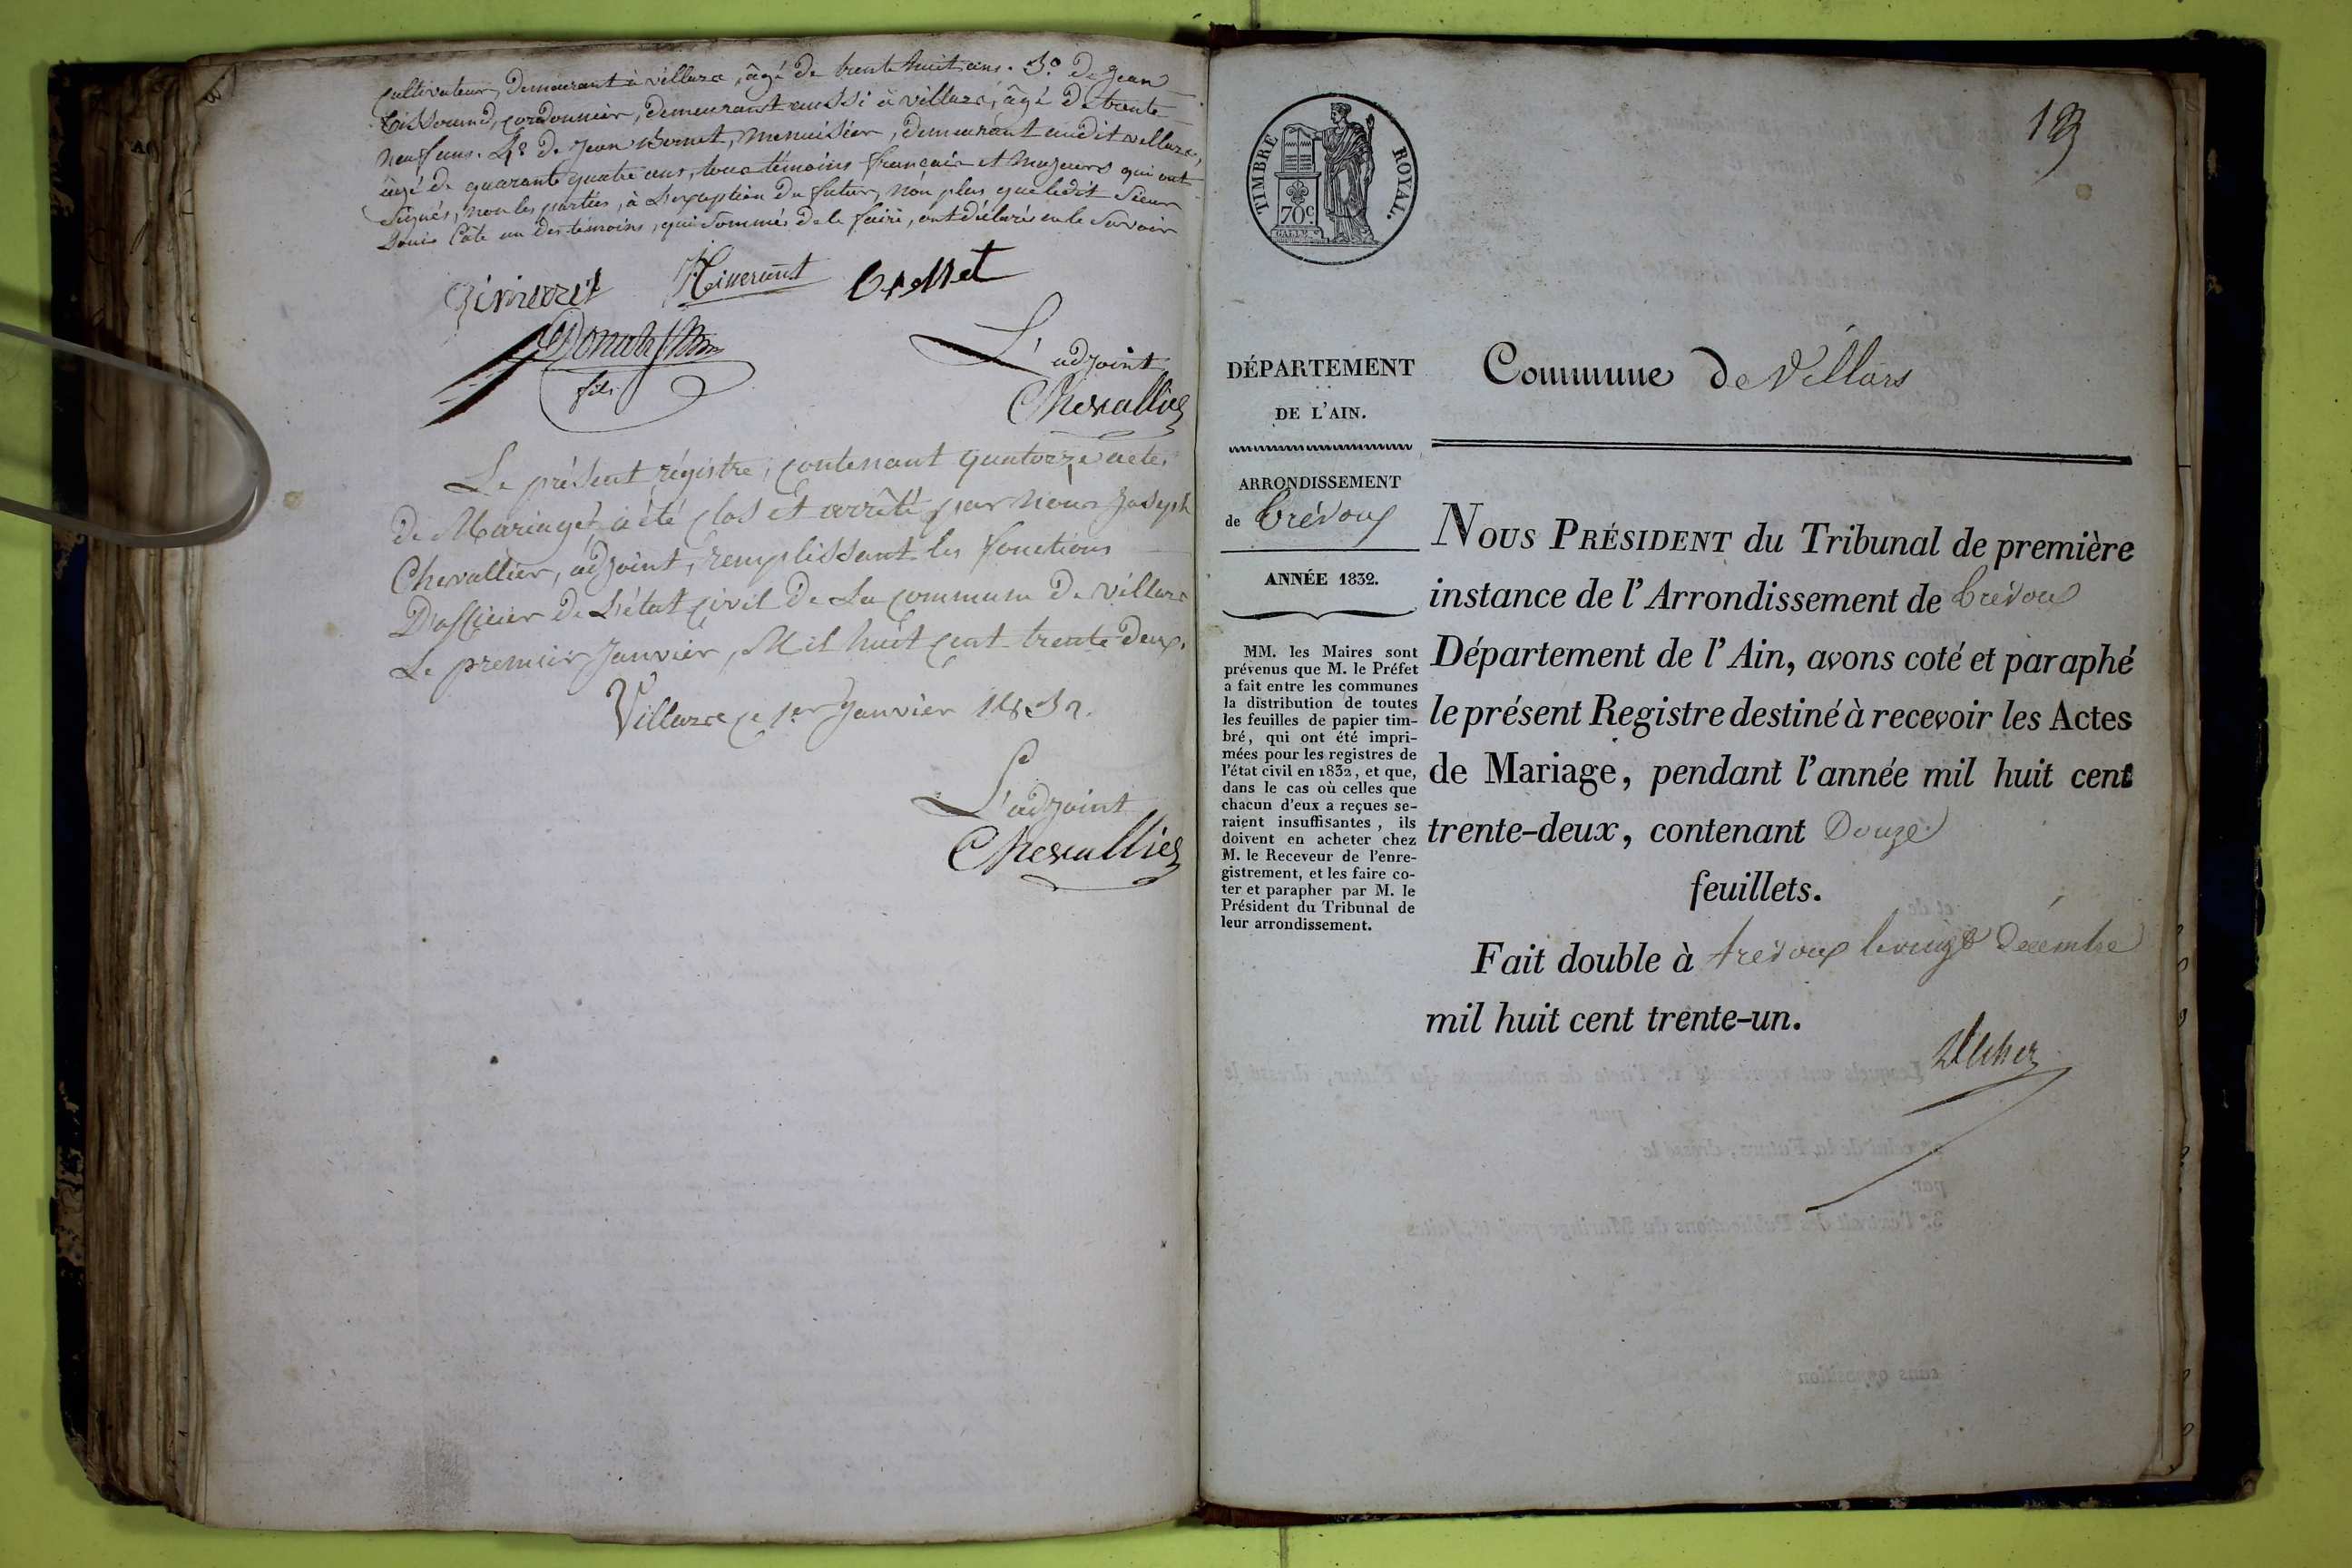 Cultivateur, demeurant à villars, âgé de trente huit ans. 3.º de Jean
Tisserand, cordonnier, demeurant aussi à villars, âgé de trente
neuf ans. 4º de Jean Bernet, menuisier, demeurant audit villars,
âgé de quarante quatre ans, tous témoins français et majeurs qui ont
signés, non les parties, à L'exception du futur, non plus que ledit Sieur
Louis Côte un des témoins, qui sommés de le faire, ont déclarés ne le savoir
fils
L'adjoint
Chevallier
Le présent régistre, contenant quatorze actes
de Mariage, a été clos et arrêté par nous Joseph
Chevallier, adjoint, remplissant les fonctions
D'officier de L'état civil de La commune de villars
Le premier Janvier, Mil huit cent trente deux.
Villars ce 1er Janvier 1832.
L'adjoint
Chevallier
TIMBRE ROYAL.
70c.
GALLE
DÉPARTEMENT
DE L'AIN.
ARRONDISSEMENT
de Trévoux
ANNÉE 1832.
MM. les Maires sont
prévenus que M. le Préfet
a fait entre les communes
la distribution de toutes
les feuilles de papier tim-
bré, qui ont été impri-
mées pour les registres de
l'état civil en 1832, et que,
dans le cas où celles que
chacun d'eux a reçues se-
raient insuffisantes, ils
doivent en acheter chez
M. le Receveur de l'enre-
gistrement, et les faire co-
ter et parapher par M. le
Président du Tribunal de
leur arrondissement.
Commune de Villars
NOUS PRÉSIDENT du Tribunal de première
instance de l'Arrondissement de trévoux
Département de l'Ain, avons coté et paraphé
le présent Registre destiné à recevoir les Actes
de Mariage, pendant l'année mil huit cent
trente-deux, contenant Douze
feuillets.
Fait double à trévoux le vingt Décembre
mil huit cent trente-un.